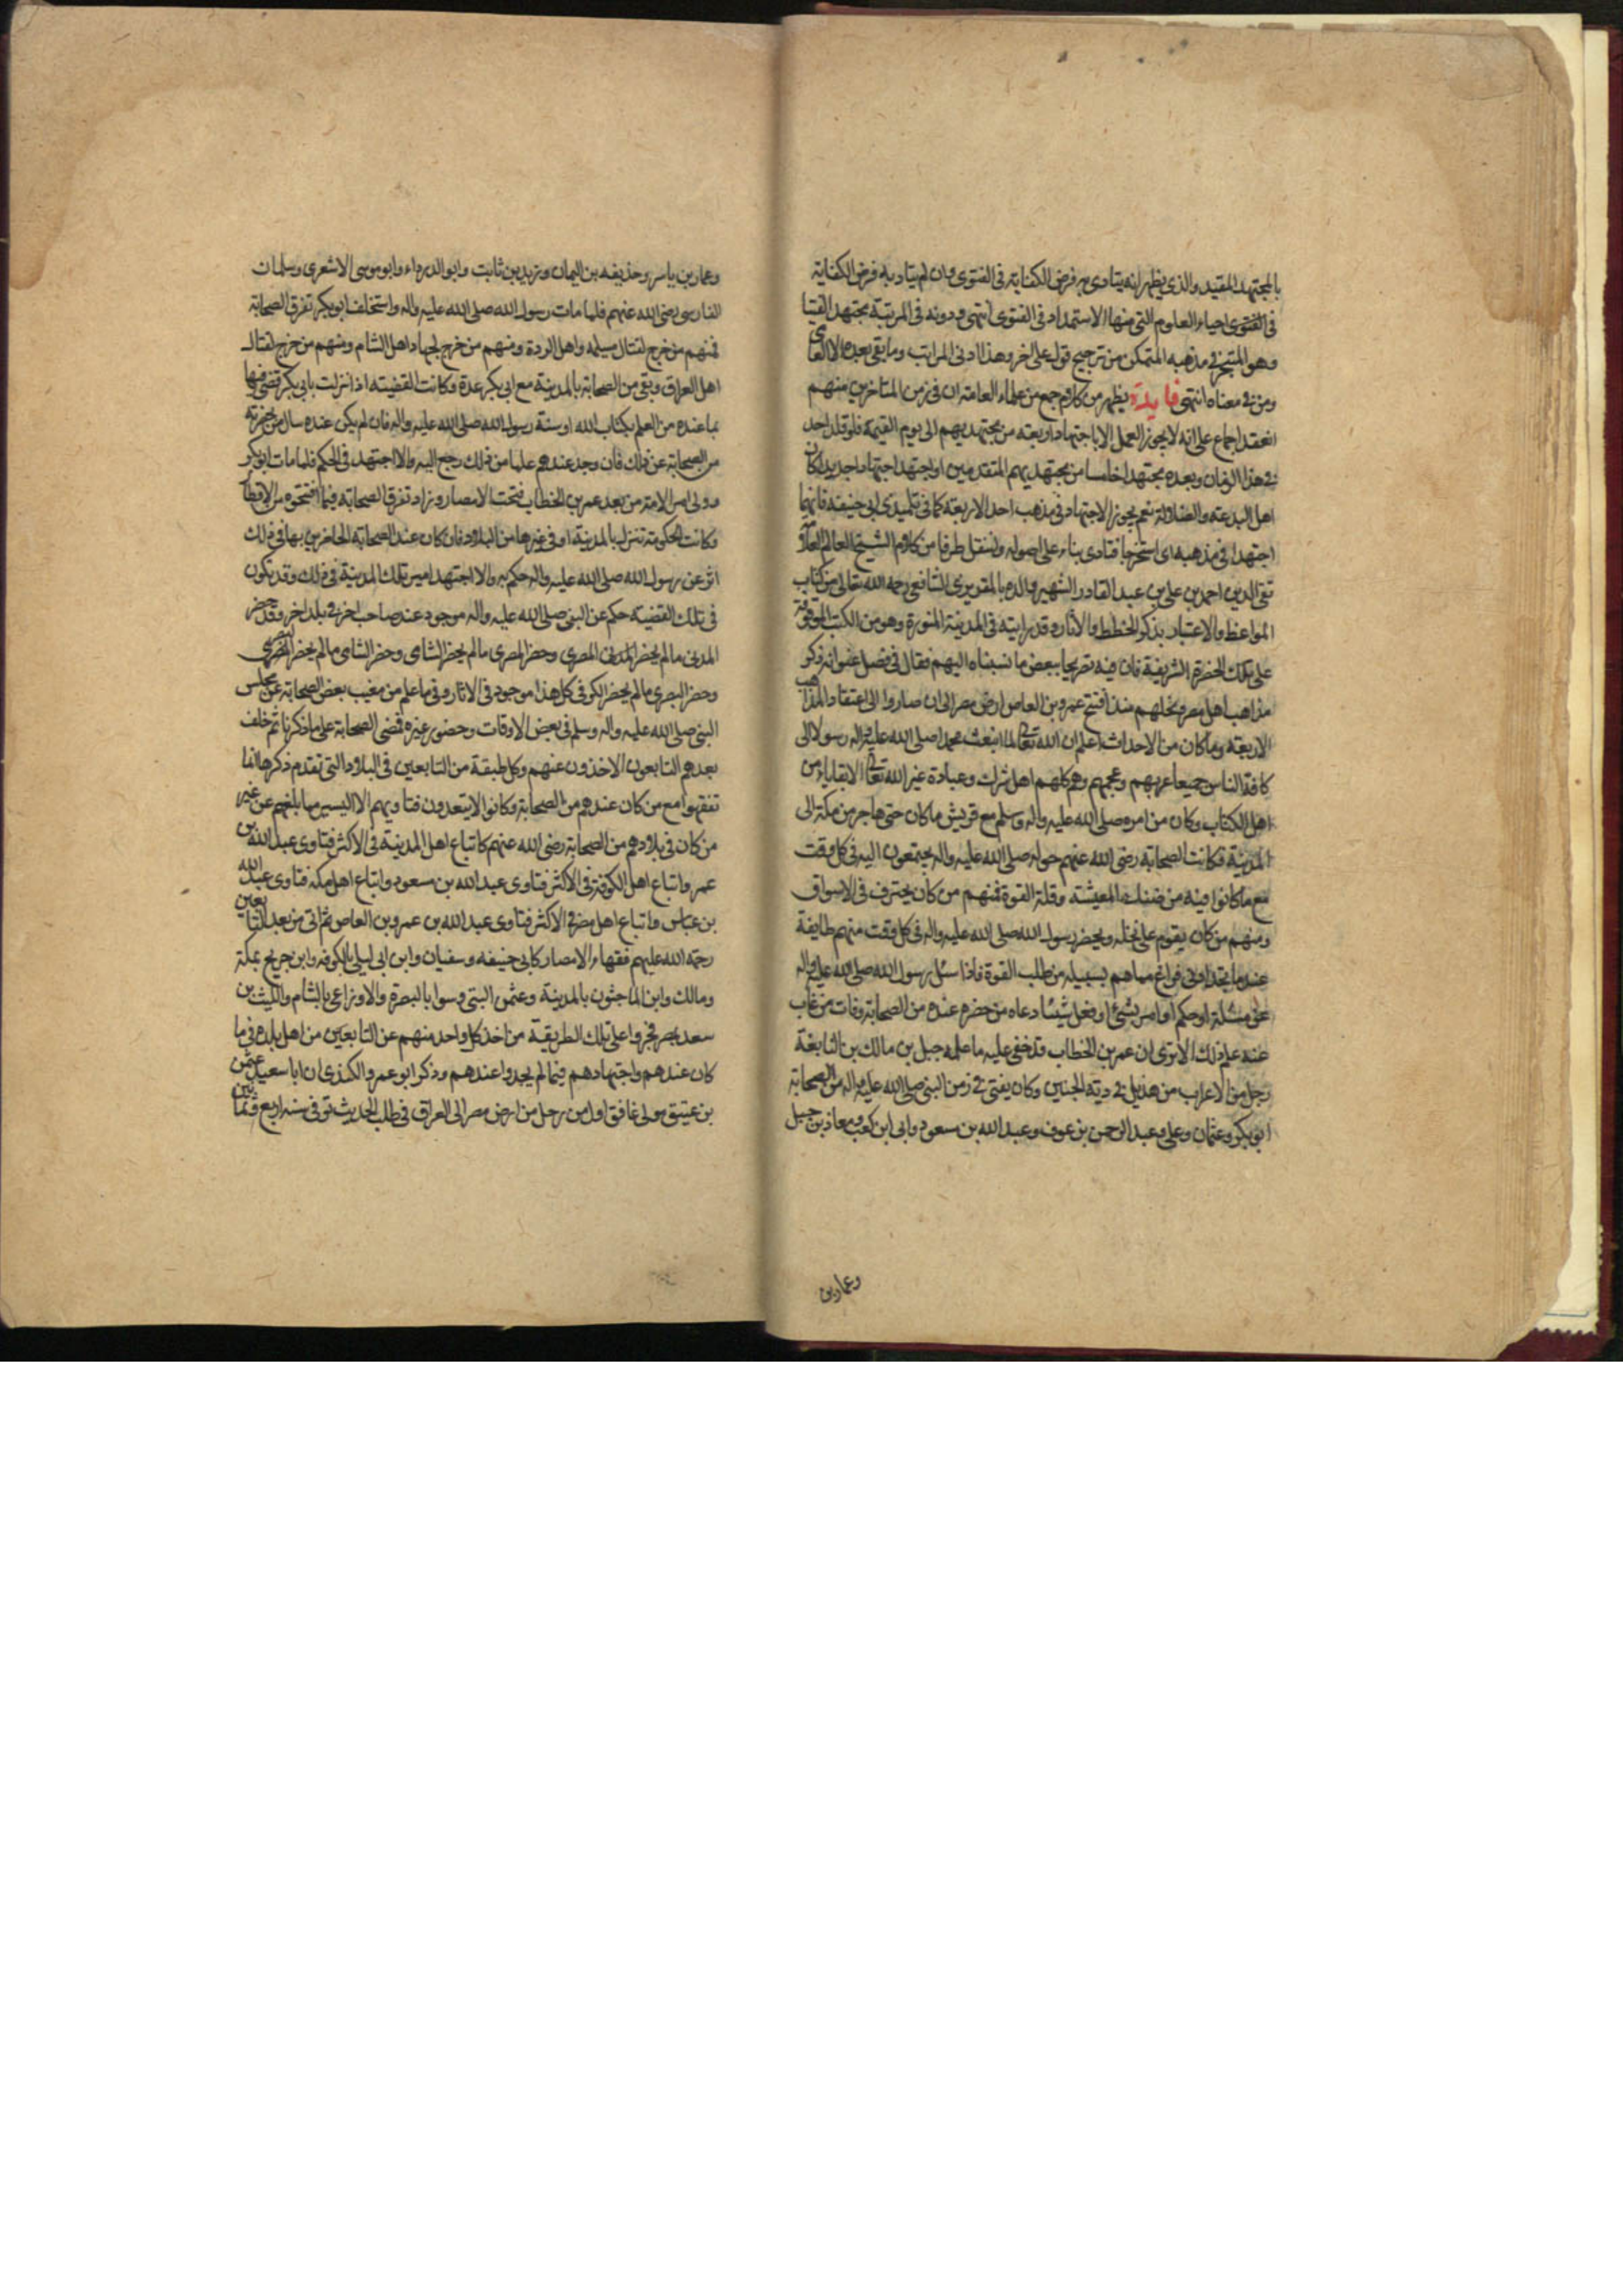 بالمجتهد المقيد والذى يظهر انه يتادى به فرض الكفاية فى الفتوى وان لم يتاد به فرض الكفاية
فى الفتوى احياء العلوم التى منها الاستمداد فى الفتوى انتهى ودونه فى المرتبة مجتهد الفتيا
وهو المتبحر فى مذهبه المتمكن من ترجيح قول على اخر وهذا ادنى المراتب وما بقى بعده الا العامى
ومن فى معناه انتهى فايدة يظهر من كلام جمع من علماء العامة ان فى زمن المتاخرين منهم
انعقد اجماع على انه لا يجوز العمل الا باجتهاد اربعة من مجتهديهم الى يوم القيمة فلو قلد احد
فى هذا الزمان وبعده مجتهدا خامسا من مجتهديهم المتقدمين او اجتهد اجتهادا جديدا كان
اهل البدعة والضلالة نعم يجوز الاجتهاد فى مذهب احد الاربعة كما فى تلميذى ابى حنيفة فانهما
اجتهدا فى مذهبه اى استخرجا فتاوى بناء على اصوله ولننقل طرفا من كلام الشيخ العالم العلامة
تقى الدين احمد بن على بن عبد القادر الشهير والده بالمقريزى الشافعى رحمه الله تعالى من كتاب
المواعظ والاعتبار بذكر الخطط والاثار وقد رايته فى المدينة المنورة وهو من الكتب الموقوفة
على تلك الحضرة الشريفة فان فيه تصريحا ببعض ما نسبناه اليهم فقال فى فصل عنوانه ذكر
مذاهب اهل مصر ونحلهم منذ افتتح عمرو بن العاص ارض مصر الى ان صاروا الى اعتقاد المذاهب
الاربعة وما كان من الاحداث اعلم ان الله تعالى لما ابعث محمدا صلى الله عليه واله رسولا الى
كافة الناس جميعا عربهم وعجمهم وهم كلهم اهل شرك وعبادة غير الله تعالى الا بقايا من
اهل الكتاب وكان من امره صلى الله عليه واله وسلم مع قريش ما كان حتى هاجر من مكة الى
المدينة فكانت الصحابة رضى الله عنهم حوله صلى الله عليه واله يجتمعون اليه فى كل وقت
مع ما كانوا فيه من ضنك المعيشة وقلة القوة فمنهم من كان يحترف فى الاسواق
ومنهم من كان يقوم على نخله ويحضر رسول الله صلى الله عليه واله فى كل وقت منهم طايفة
عند ما يجدادنى فراغ مما هم بسبيله من طلب القوة فاذا سئل رسول الله صلى الله عليه واله
عن مسئلة او حكم او امر بشئ او فعل شيئا دعاه من حضره عنده من الصحابة وفات من غاب
عنه علم ذلك الا ترى ان عمر بن الخطاب قد خفى عليه ما علمه جبل بن مالك بن النابغة
رجل من الاعراب من هذيل فى دية الجنين وكان يفتى فى زمن النبى صلى الله عليه واله من الصحابة
ابو بكر وعثمان وعلى وعبد الرحمن بن عوف وعبد الله بن مسعود وابى ابن كعب ومعاذ بن جبل
وعمار بن
وعمار بن ياسر وحذيفه بن اليمان وزيد بن ثابت وابو الدرداء وابو موسى الاشعرى وسلمان
الفارسى رضى الله عنهم فلما مات رسول الله صلى الله عليه واله واستخلف ابو بكر تفرق الصحابة
فمنهم من خرج لقتال مسيلمه واهل الردة ومنهم من خرج لجهاد اهل الشام ومنهم من خرج لقتال
اهل العراق وبقى من الصحابة بالمدينة مع ابى بكر عدة وكانت القضيته اذا نزلت بابى بكر قضى فيها
بما عنده من العلم بكتاب الله او سنة رسول الله صلى الله عليه واله فان لم يكن عنده سال من بحضرته
من الصحابة عن ذلك فان وجد عندهم علما من ذلك رجع اليه والا اجتهد فى الحكم فلما مات ابو بكر
وولى امر الامة من بعد عمر بن الخطاب فتحت الامصار وزاد تفرق الصحابة فيما افتتحوه من الاقطار
وكانت الحكومة تنزل بالمدينة او فى غيرها من البلاد فان كان عند الصحابة الحاضرين بها فى ذلك
اثر عن رسول الله صلى الله عليه واله حكم به والا اجتهد امير تلك المدينة فى ذلك وقد يكون
فى تلك القضية حكم عن النبى صلى الله عليه واله موجود عند صاحب اخر فى بلد اخر وقد حضر
المدنى ما لم يحضر المدنى المصرى وحضر المصرى ما لم يحضر الشامى وحضر الشامى ما لم يحضر البصرى
وحضر البصرى ما لم يحضر الكوفى كل هذا موجود فى الاثار وفى ما علم من مغيب بعض الصحابة عن مجلس
النبى صلى الله عليه واله وسلم فى بعض الاوقات وحضور غيره فمضى الصحابة على ما ذكرنا ثم خلف
بعدهم التابعون الاخذون عنهم وكل طبقة من التابعين فى البلاد التى تقدم ذكرها انما
تفقهوا مع من كان عندهم من الصحابة وكانوا لا يتعدون فتاويهم الا اليسير مما بلغهم عن غير
من كان فى بلادهم من الصحابة رضى الله عنهم كاتباع اهل المدينة فى الاكثر فتاوى عبد الله بن
عمر واتباع اهل الكوفة فى الاكثر فتاوى عبد الله بن مسعود واتباع اهل مكه فتاوى عبد الله
بن عباس واتباع اهل مصر فى الاكثر فتاوى عبد الله بن عمرو بن العاص ثم اتى من بعد التابعين
رحمة الله عليهم فقهاء الامصار كابى حنيفه وسفيان وابن ابى ليلى بالكوفه وابن جريج بمكة
ومالك وابن الماجشون بالمدينة وعثمن البتى وسوار بالبصرة والاوزاعى بالشام والليث بن
سعد بمصر فجروا على تلك الطريقة من اخذ كل واحد منهم عن التابعين من اهل بلده فى ما
كان عندهم واجتهادهم فيما لم يجدوا عندهم وذكر ابو عمرو الكندى ان ابا سعيد عثمن
بن عتيق مولى غافق اول من رحل من ارض مصر الى العراق فى طلب الحديث توفى سنه اربع وثمانين